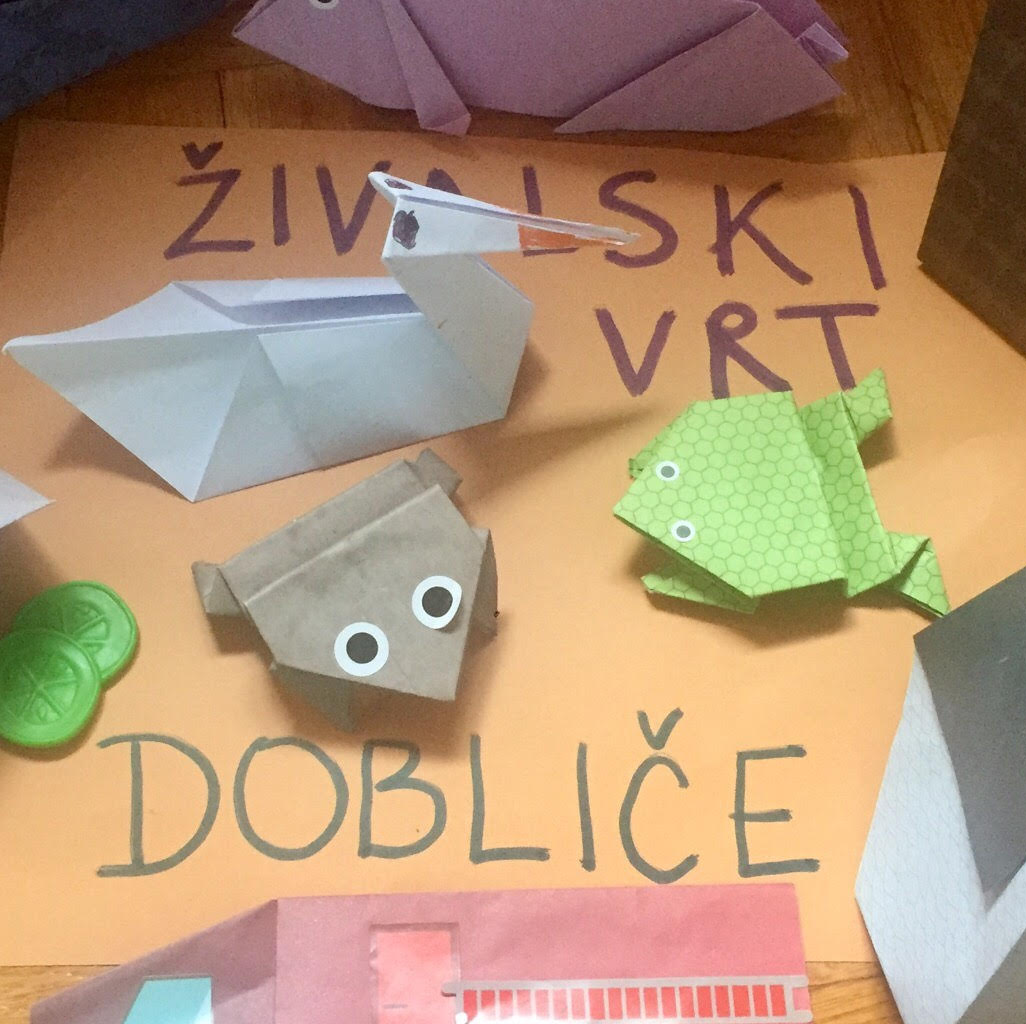 ŽIVALSKI
VRT
DOBLIČE